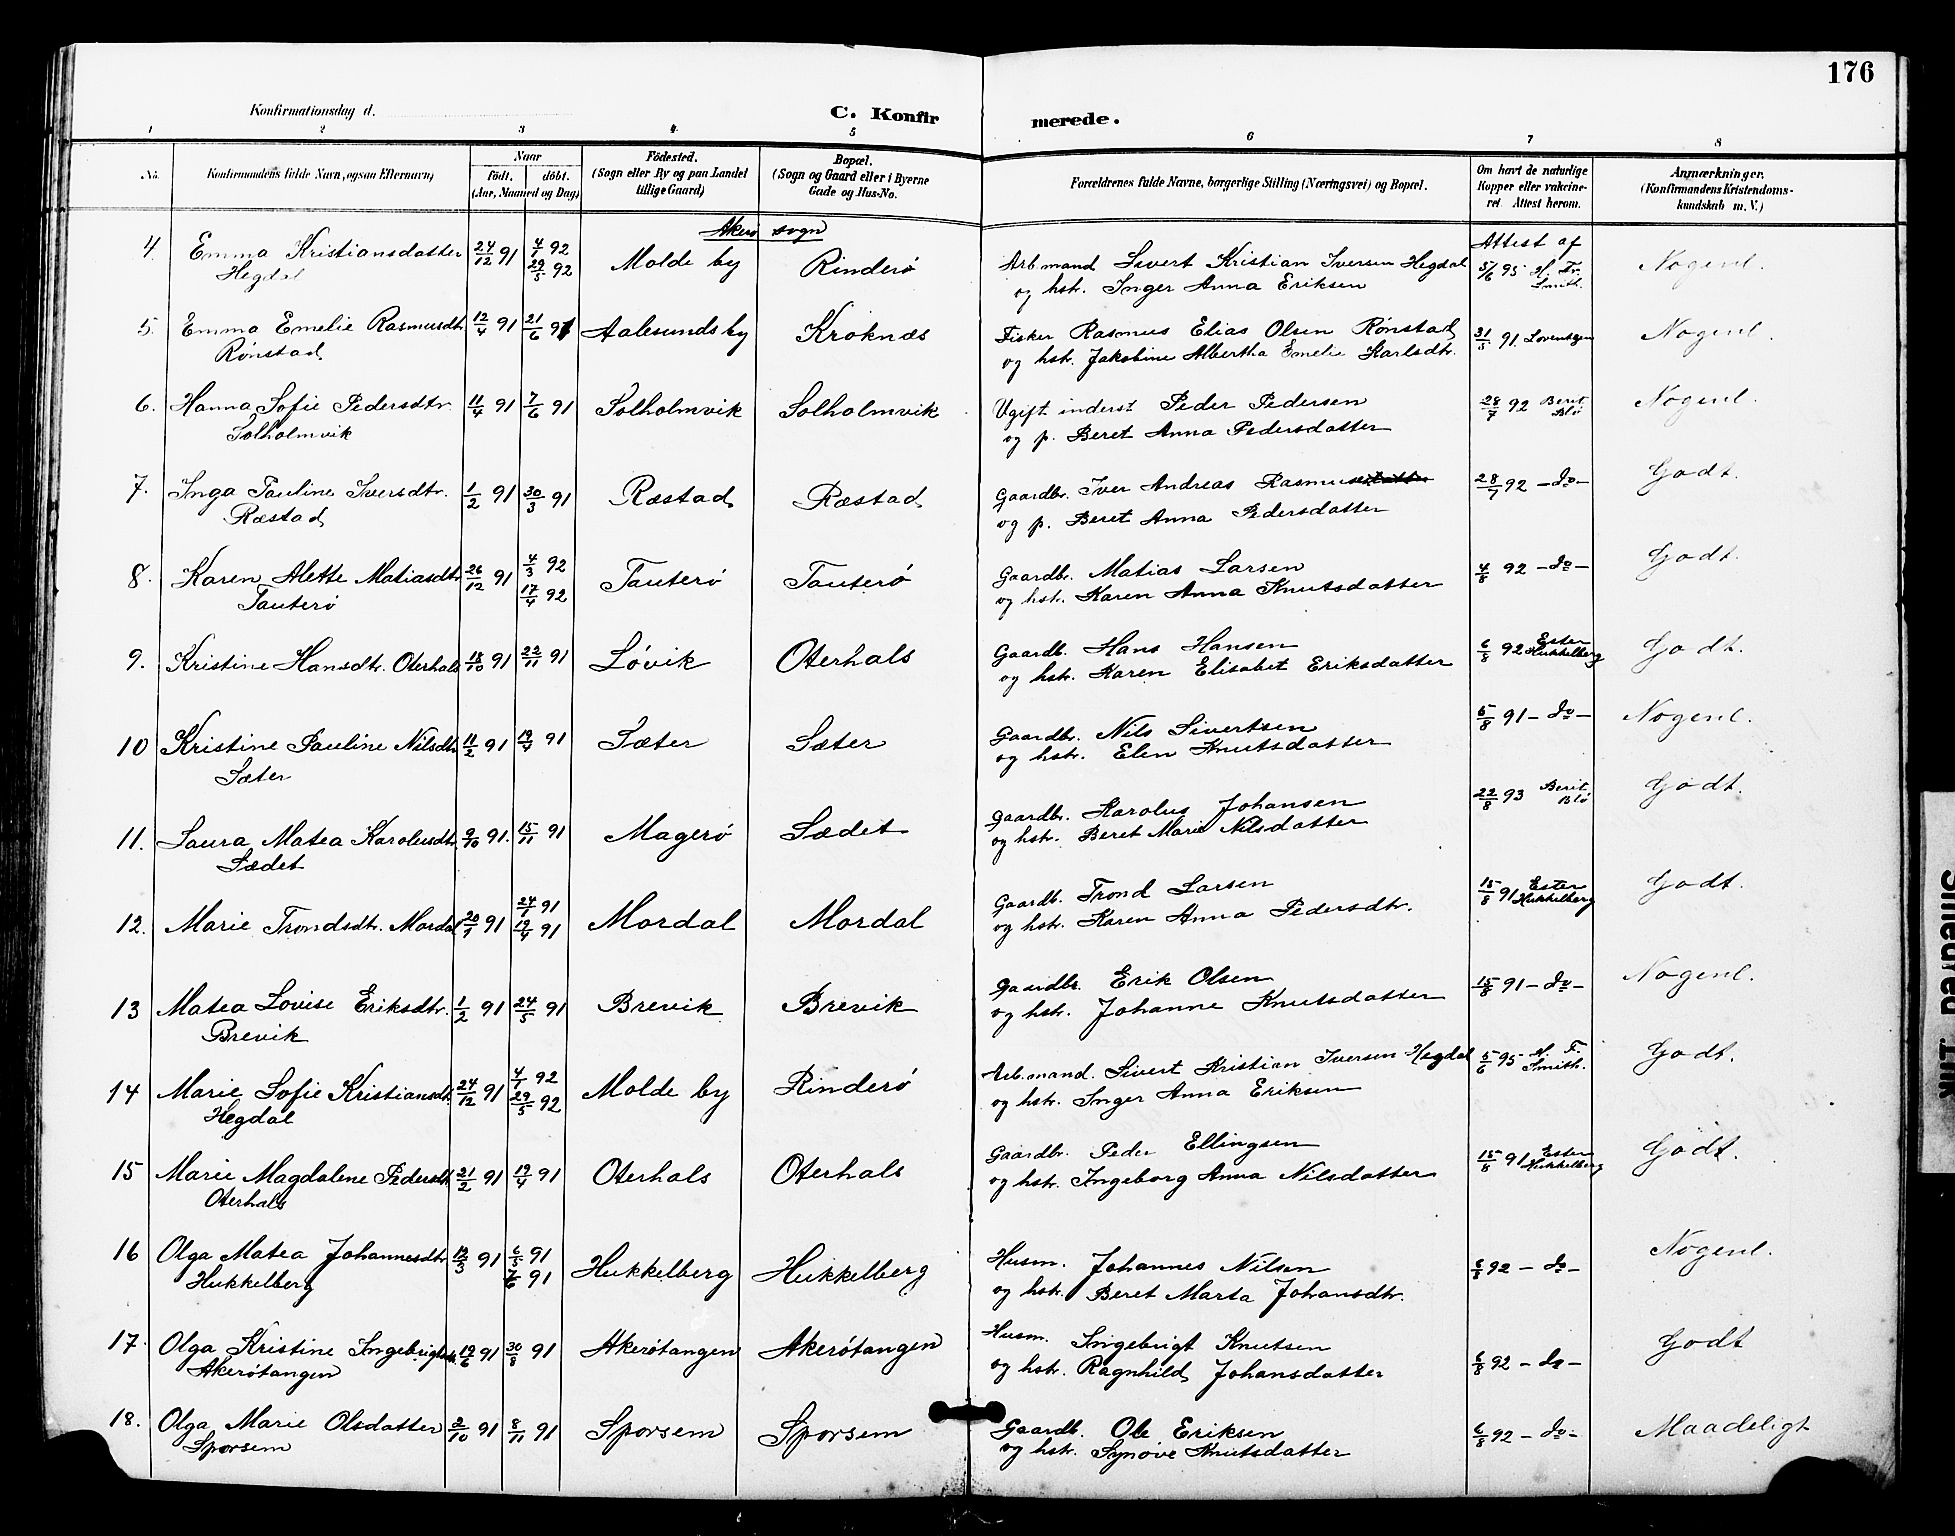 176
Konfirmationsdag d.
C. Konfirmerede.
1 2 3 4 5 6 7 8
No. Konfirmandens fulde Navn, ogsaa Efternavn) Naar født. døbt. (Aar, Maaned og Dag) Fødested. (Sogn eller By og paa Landet tillige Gaard) Bopæl. (Sogn og Gaard eller i Byerne Gade og Hus-No. Forældrenes fulde Navne, borgerlige Stilling (Næringsvei) og Bopæl. Om havt de naturlige Kopper eller vakcineret. Attest herom. Anmærkninger. (Konfirmandens Kristendomskundskab m. V.)
Akerø sogn
4. Emma Kristiansdatter 24/12 91 4/1 92 Molde by Rinderø Arb.mand Sivert Kristian Iversen Hegdal Attest af Nogenl.
Hegdal 29/5 92 og hstr. Inger Anna Eriksen 5/6 95 H. Fr. Smith.
5. Emma Emelie Rasmusdtr. 12/4 91 21/6 91 Aalesunds by Kroknæs Fisker Rasmus Elias Olsen Rønstad 31/5 91. Lorentzen Nogenl.
Rønstad og hstr. Jakobine Albertha Emelie Karlsdtr.
6. Hanna Sofie Pedersdtr. 11/4 91 7/6 91 Solholmvik Solholmvik Ugift inderst Peder Pedersen 28/7 92 Berit Blø Nogenl.
Solholmvik og p. Beret Anna Pedersdatter
7. Inga Pauline Iversdtr. 1/2 91 30/3 91 Ræstad Ræstad Gaardbr. Iver Andreas Rasmus 28/7 92 - do - Godt.
Ræstad og p. Beret Anna Pedersdatter
8. Karen Alette Matiasdtr. 26/12 91 4/3 92 Tauterø Tauterø Gaardbr. Matias Larsen 4/8 92 - do - Godt.
Tauterø 17/4 92 og hstr. Karen Anna Knutsdatter
9. Kristine Hansdtr. Oterhals 18/10 91 22/11 91 Løvik Oterhals Gaardb. Hans Hansen 6/8 92 Ester Hukkelberg Godt.
og hstr. Karen Elisabet Eriksdatter
10 Kristine Pauline Nilsdtr. 11/2 91 19/4 91 Sæter Sæter Gaardbr. Nils Sivertsen 5/8 91 - do - Nogenl.
Sæter og hstr. Elen Knutsdatter
11. Laura Matea Karolusdtr. 9/10 91. 15/11 91 Magerø Sædet Gaardbr. Karolus Johansen 22/8 93 Berit Blø Godt.
Sædet og hstr. Beret Marie Nilsdatter
12. Marie Trondsdtr. Mordal 20/1 91 24/1 91 Mordal Mordal Gaardb. Trond Larsen 15/8 91 Ester Hukkelberg Godt.
19/4 91 og hstr. Karen Anna Pedersdtr.
13 Matea Lovise Eriksdtr. 1/2 91 24/5 91 Brevik Brevik Gaardbr. Erik Olsen 15/8 91 - do - Nogenl.
Brevik og hstr. Johanne Knutsdatter
14 Marie Sofie Kristiansdtr. 24/12 91 4/1 92 Molde by Rinderø Arb.mand. Sivert Kristian Iversen Hegdal 5/6 95 H. F. Smith. Godt.
Hegdal 29/5 92 og hstr. Inger Anna Eriksen
15 Marie Magdalene Pedersdtr. 21/2 91 19/4 91 Oterhals Oterhals Gaardbr. Peder Ellingsen 15/8 91 Ester Hukkelberg Godt.
Oterhals og hstr. Ingeborg Anna Nilsdatter
16 Olga Matea Johannesdtr. 19/3 91 6/5 91 Hukkelberg Hukkelberg Husm. Johannes Nilsen 6/8 92 - do - Nogenl.
Hukkelberg 7/6 91 og hstr. Beret Marta Johansdtr.
17. Olga Kristine Ingebrigtsdtr. 19/6 91 30/8 91 Akerøtangen Akerøtangen Husm. Ingebrigt Knutsen 6/8 92 - do - Godt
Akerøtangen og hstr. Ragnhild Johansdatter
18. Olga Marie Olsdatter 2/10 91 8/11 91 Sporsem Sporsem Gaardb. Ole Eriksen 6/8 92 - do - Maadeligt
Sporsem og hstr. Synøve Knutsdatter